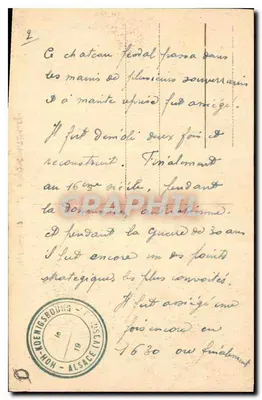 2
Ce chateau féodal passa dans
les mains de plusieurs souverrains
et à mainte reprise fut assiégé.
Il fut démoli deux fois et
reconstruit. Finalement
au 16ème siècle, pendant
la domination autrichienne
et pendant la guerre de 30 ans
il fut encore un des points
strategiques les plus convoités.
Il fut assiégé une
fois encore en
1630 ou finalement
HOH-KOENIGSBOURG
ALSACE
le
19
CARAPHIL